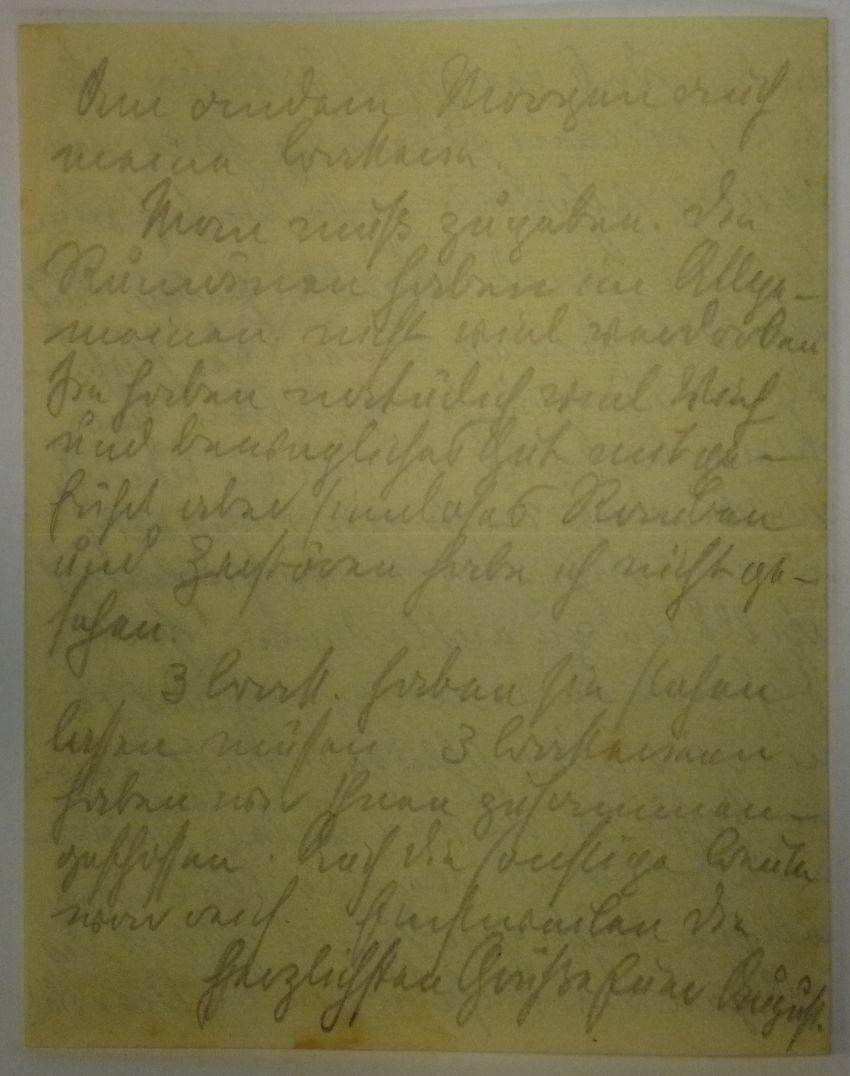 Am andern Morgen auch
meine Batterie.
Man muß zugeben. Die
Rumänen haben im Allge-
meinen nicht viel verdorben
Sie haben natürlich viel Vieh
und bewegliches Gut mitge-
führt aber sinnloses Rauben
und Zerstören habe ich nicht ge-
sehen.
3 Batt. haben sie stehen
lassen müssen. 3 Batterien
haben wir ihnen zusammen-
geschossen. Auch die sonstige Beute
war reich. Einstweilen die
herzlichsten Grüße Euer August.